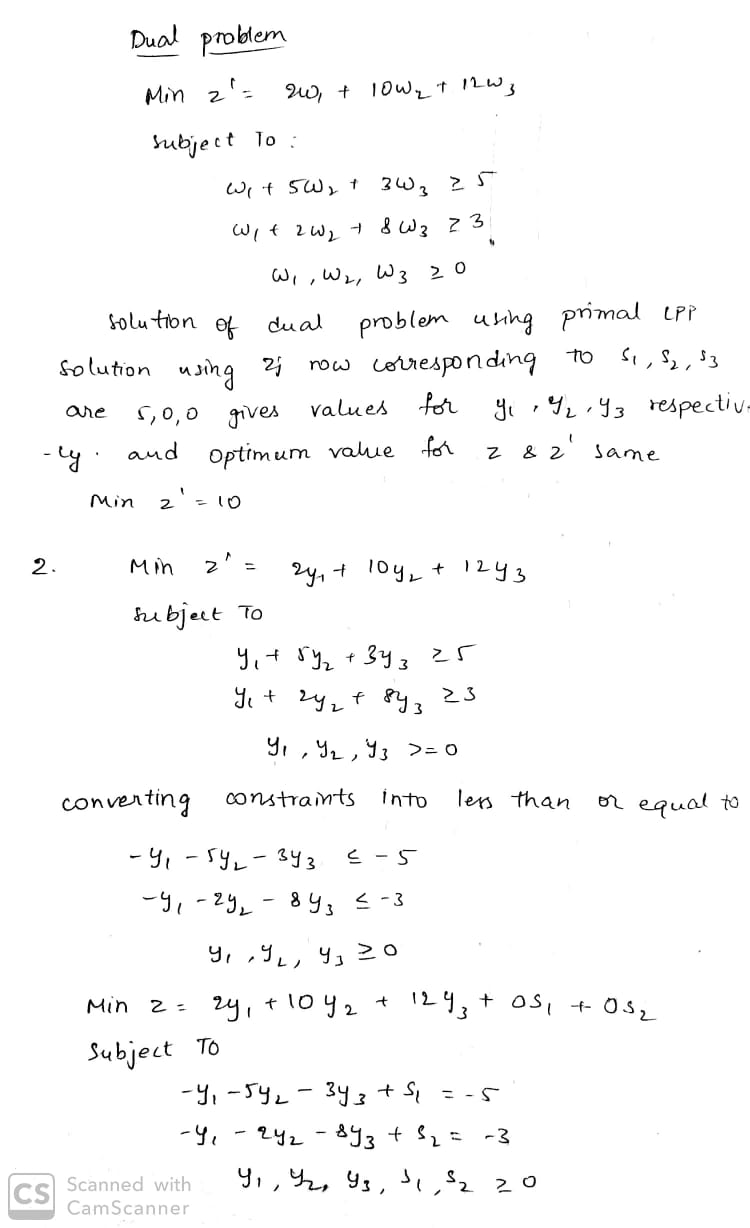 Dual problem
Min z' = 2w₁ + 10w₂ + 12w₃
Subject To :
w₁ + 5w₂ + 3w₃ ≥ 5
w₁ + 2w₂ + 8w₃ ≥ 3
w₁, w₂, w₃ ≥ 0
solution of dual problem using primal LPP
solution using zj row corresponding to s₁, s₂, s₃
are 5,0,0 gives values for y₁, y₂, y₃ respectiv-
-ly. and optimum value for z & z' same
Min z' = 10
2. Min z' = 2y₁ + 10y₂ + 12y₃
Subject To
y₁ + 5y₂ + 3y₃ ≥ 5
y₁ + 2y₂ + 8y₃ ≥ 3
y₁, y₂, y₃ >= 0
converting constraints into less than or equal to
-y₁ - 5y₂ - 3y₃ ≤ -5
-y₁ - 2y₂ - 8y₃ ≤ -3
y₁, y₂, y₃ ≥ 0
Min z = 2y₁ + 10y₂ + 12y₃ + 0s₁ + 0s₂
Subject To
-y₁ - 5y₂ - 3y₃ + s₁ = -5
-y₁ - 2y₂ - 8y₃ + s₂ = -3
y₁, y₂, y₃, s₁, s₂ ≥ 0
CS Scanned with
CamScanner